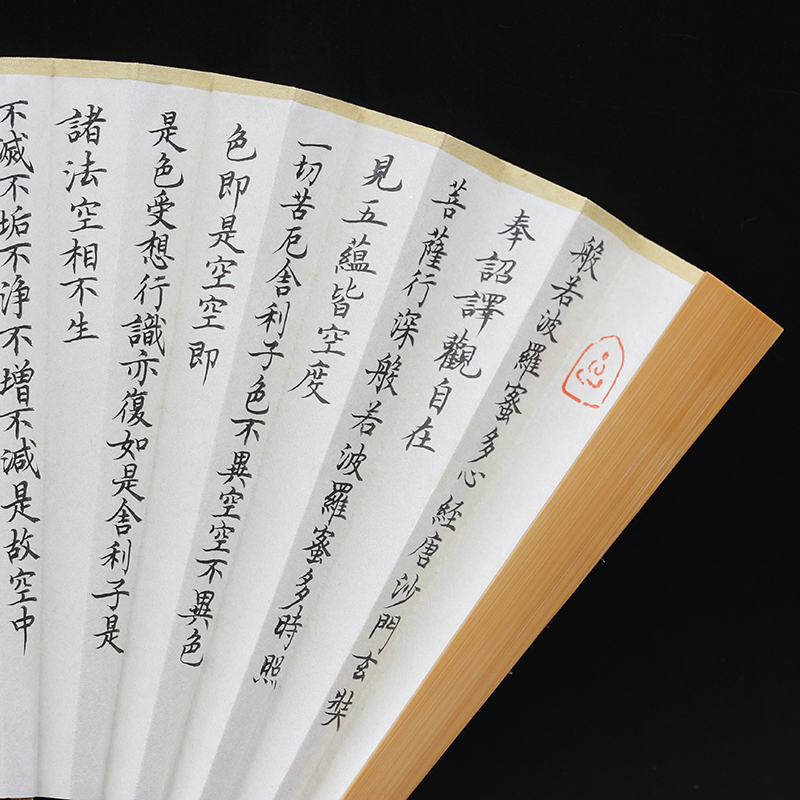 般若波羅蜜多心経唐沙門玄奘
奉詔譯觀自在
菩薩行深般若波羅蜜多時照
見五蘊皆空度
一切苦厄舍利子色不異空空不異色
色即是空空即
是色受想行識亦復如是舍利子是
諸法空相不生
不滅不垢不浄不增不減是故空中